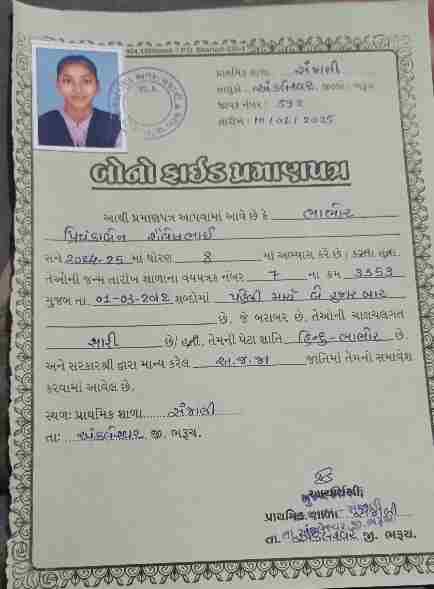 પ્રાથમિક શાળા સંગાલી
તાલુકો અંકલેશ્વર જીલ્લા : ભરૂચ
જાવક નંબર : 592
તારીખ : 11/02/2025
બોનોફાઈડ પ્રમાણપત્ર
આથી પ્રમાણપત્ર આપવામાં આવે છે કે ભાભોર
પ્રિયંકાબેન શૈલેષભાઈ
સને 2024-25 માં ધોરણ 8 માં અભ્યાસ કરે છે / કરતા હતા.
તેઓની જન્મ તારીખ શાળાના વયપત્રક નંબર 7 ના ક્રમ 3353
મુજબ તા. 01-03-2012 શબ્દોમાં પહેલી માર્ચ બે હજાર બાર
છે. જે બરાબર છે. તેઓની ચાલચલગત
સારી છે/હતી. તેમની પેટા જ્ઞાતિ હિન્દુ-ભાભોર છે.
અને સરકારશ્રી દ્વારા માન્ય કરેલ અ.જ.જા જાતિમાં તેમનો સમાવેશ
કરવામાં આવેલ છે.
સ્થળ: પ્રાથમિક શાળા સંગાલી
તા: અંકલેશ્વર જી. ભરૂચ.
પ્રાથમિક શાળા
તા. અંકલેશ્વર જી. ભરૂચ.